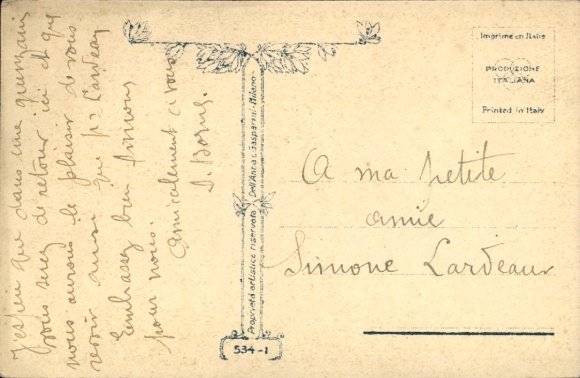 J'espère que dans une quinzaine
vous serez de retour ici et que
nous aurons le plaisir de vous
revoir ainsi que Mr Lardeau
Embrassez bien Simone
pour nous.
Amicalement à vous
Proprietà artistica riservata Dell'Anna & Gasparini - Milano -
534-1
Imprimé en Italie
PRODUZIONE
ITALIANA
Printed in Italy
A ma petite
amie
Simone Lardeaux